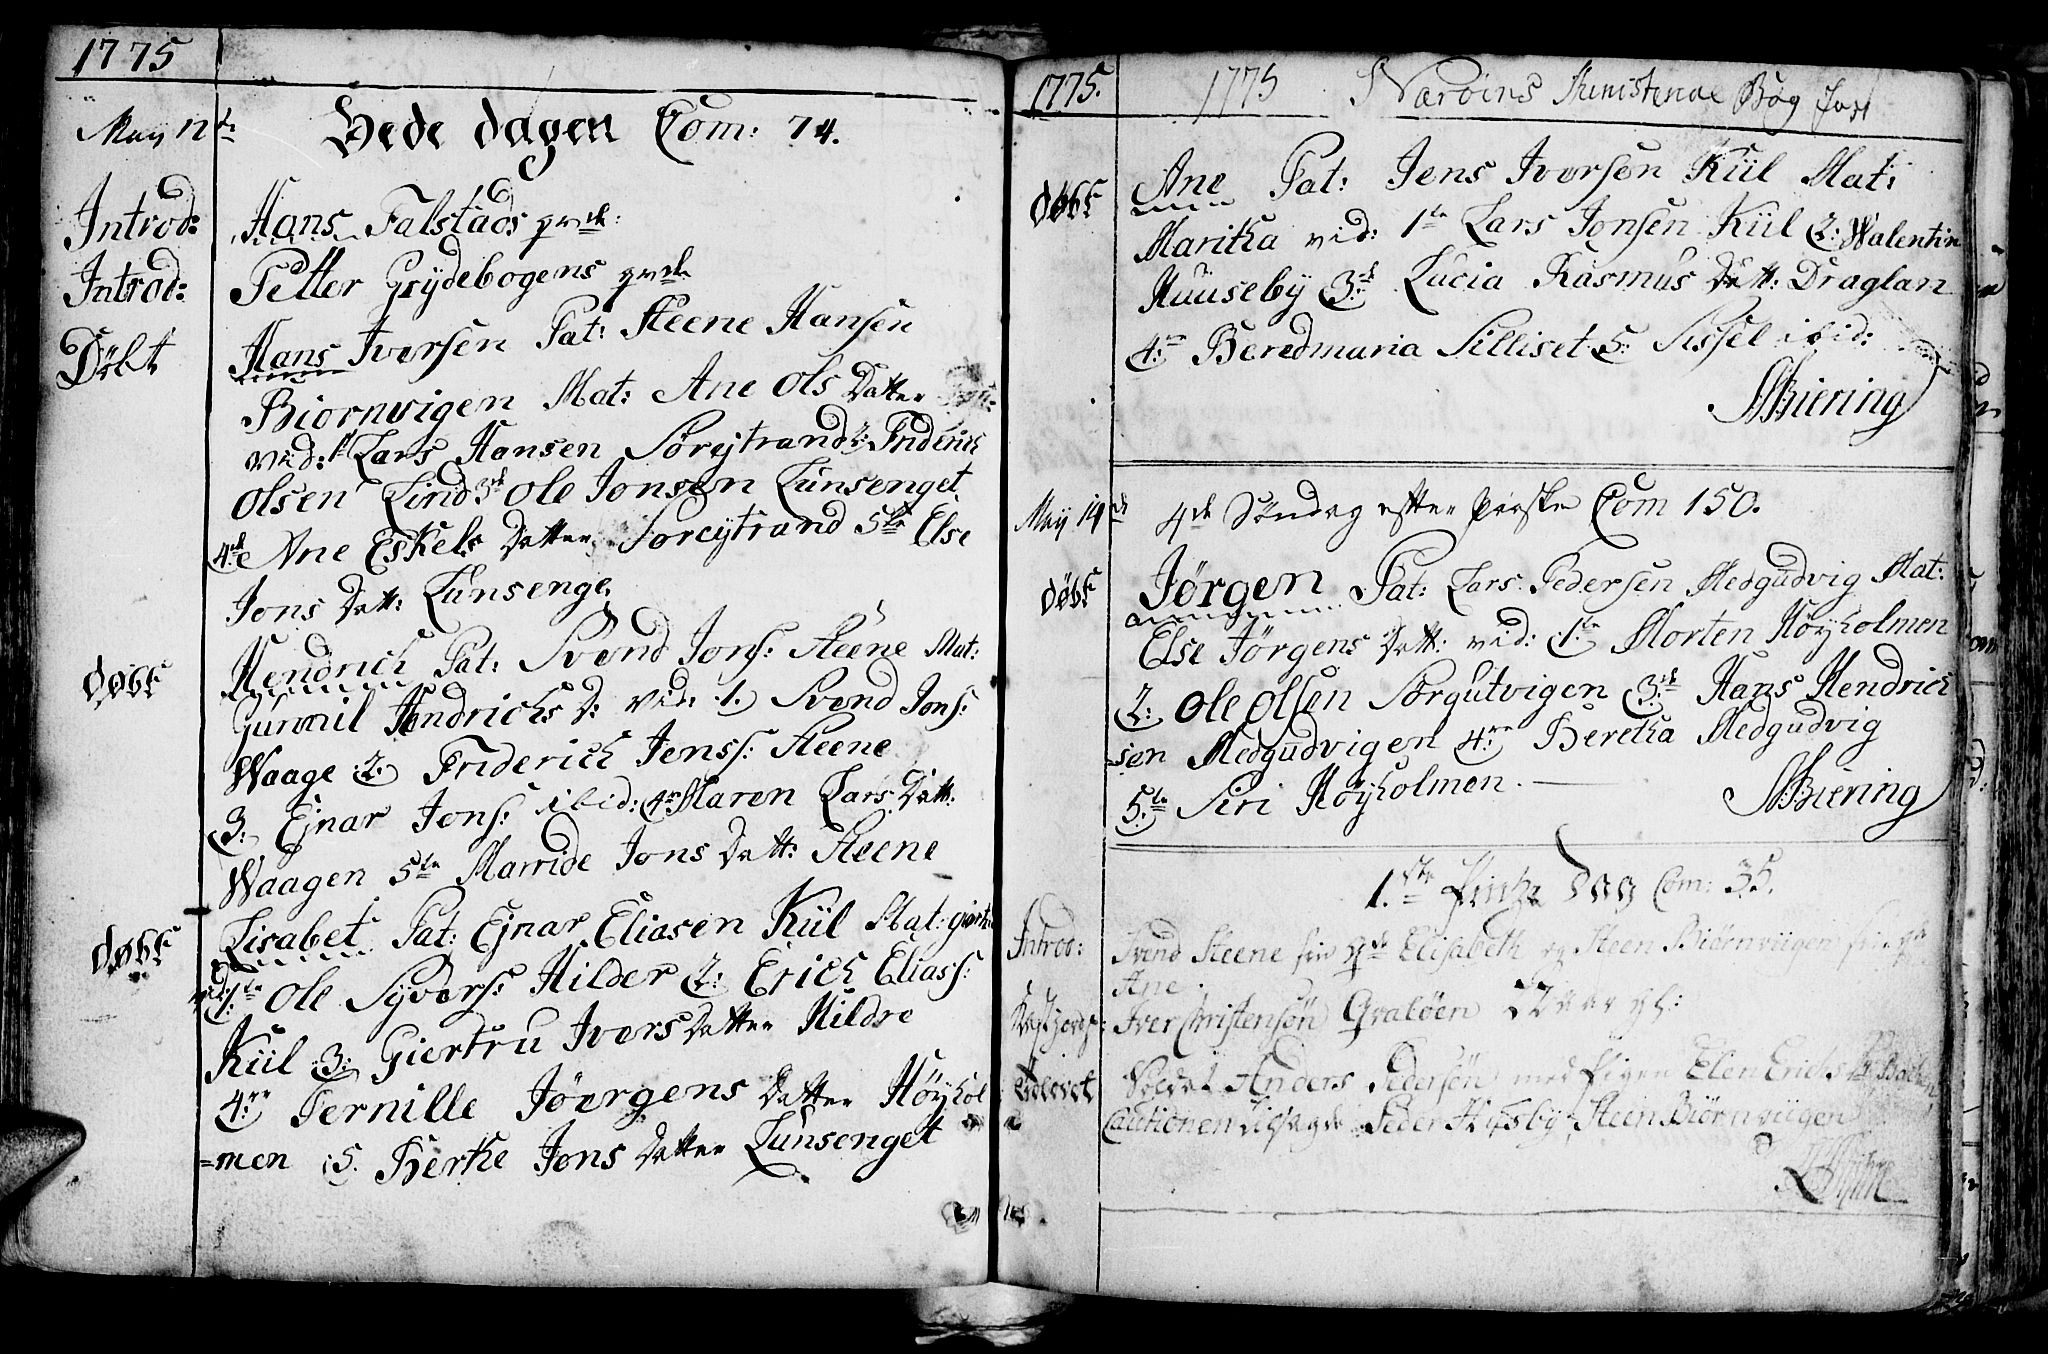 1775
May 12te Bede dagen Com: 74.
Introd: Hans Falstads qvde:
Introd: Petter Grydebogens qvde
Døbt Hans Iversen Pat: Steene Hansen
Biørnvigen Mat: Ane Ols Datter
vid: 1te Lars Hansen Søreytrand 2: Friderich
Olsen Lind 3de Ole Jonsen Lunsenget
4de Ane Eskels Datter Soreytrand 5te Else
Jons Datt: Lunsenge
døbt Hendrich Pat: Svend Jons: Steene Mat:
Gunnil Hendrichs D: vid: 1. Svend Jons:
Waage 2: Friderich Jenss: Steene
3: Ejnar Jons: ibid: 4re Maren Lars Datt:
Waagen 5te Marride Jons Datt: Steene
døbt Lisabet Pat: Ejnar Eliasen Kiil Mat:
vid: 1te Ole Syvers: Hilder 2: Erich Eliass:
Kiil 3: Giertru Ivers Datter Hildre
4re Pernille Jöergens Datter Höyhol
=men 5. Berthe Jons Datter Lunsenget
1775. 1775 Nærøins Ministeriae Bog
døbt Ane Pat: Jens Iversen Kiil Mat:
Maritha vid: 1te Lars Jonsen Kiil 2: Walentin
Huuseby 3de Lucia Rasmus Datt: Draglan
4re Beredmaria Silliset 5: Sissel ibid:
MBiering
May 14de 4de Söndag efter Paaske Com 150.
døbt Jörgen Pat: Lars Pedersen Medgudvig Mat:
Else Jörgens Datt: vid: 1te Morten Höyholmen
2: Ole Olsen Sørgutvigen 3de Hans Hendrich
=sen Medgudvigen 4re Beretha Medgudvig
5te Siri Höyholmen.
MBiering
1.ste Pintze Dag Com: 35.
Introd: Svend Steene sin qde Elisabeth og Steen Biørnviigen sin qde
Ane.
Iver Christensøn Gvaløen
Anders Pedersøn med Pigen Elen Erichs
Cautionen tilsagde Peder Husby, Steen Biørnviigen